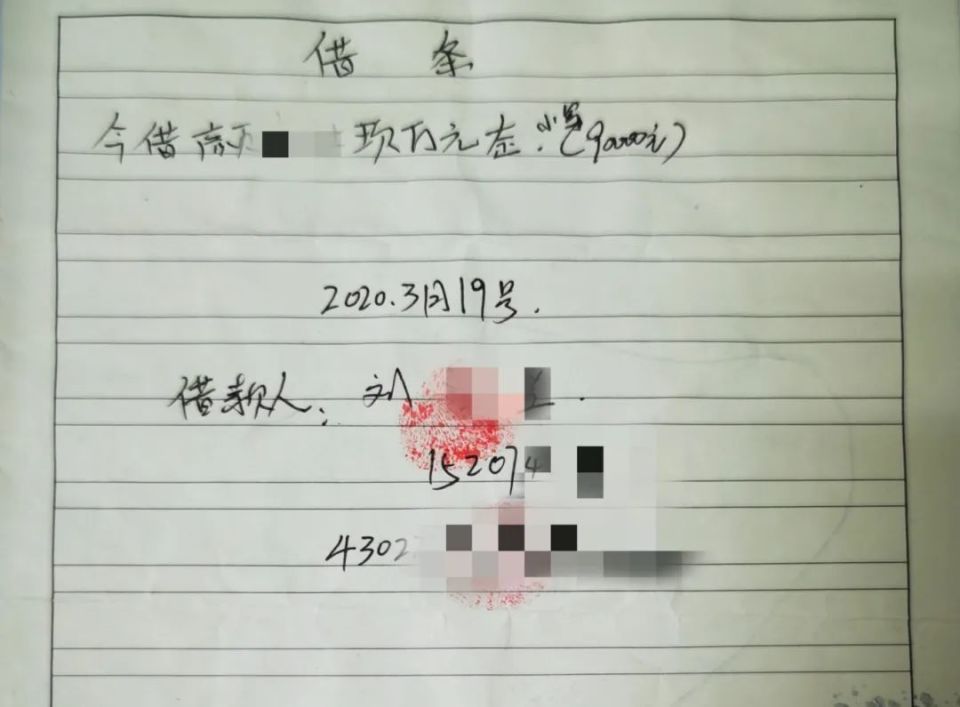 借 条
今借高 玖万元整.小写(90000元)
2020.3月19号.
借款人: 刘
152074
4302